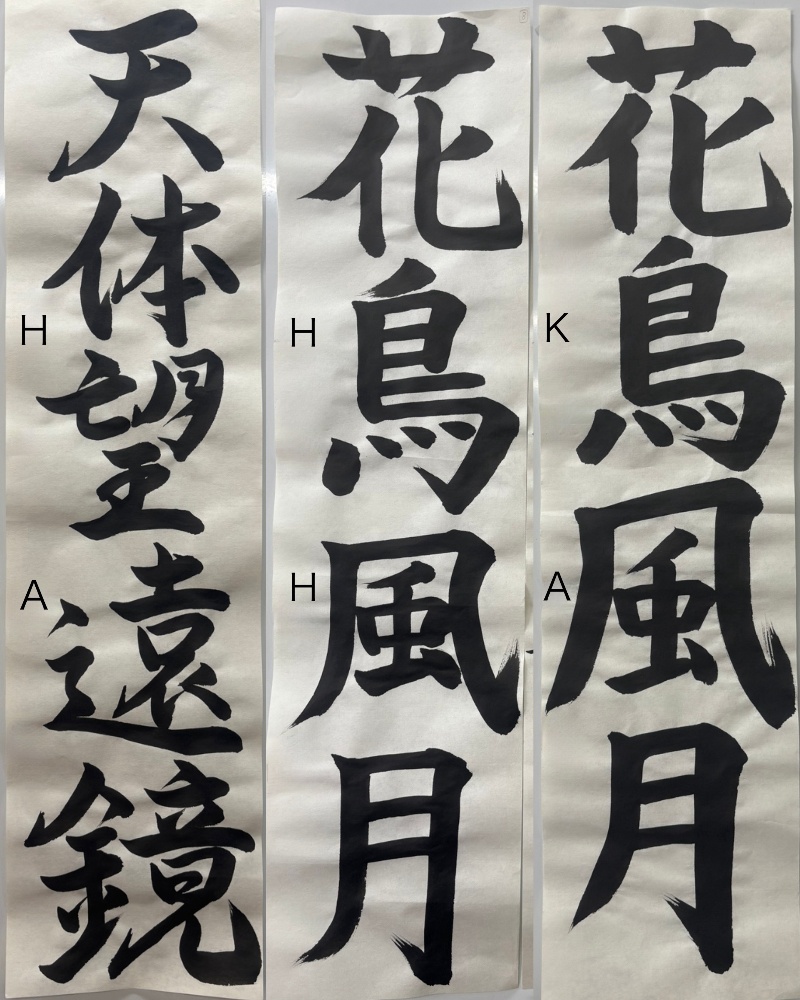 天体望遠鏡
H
A
花鳥風月
H
H
花鳥風月
K
A